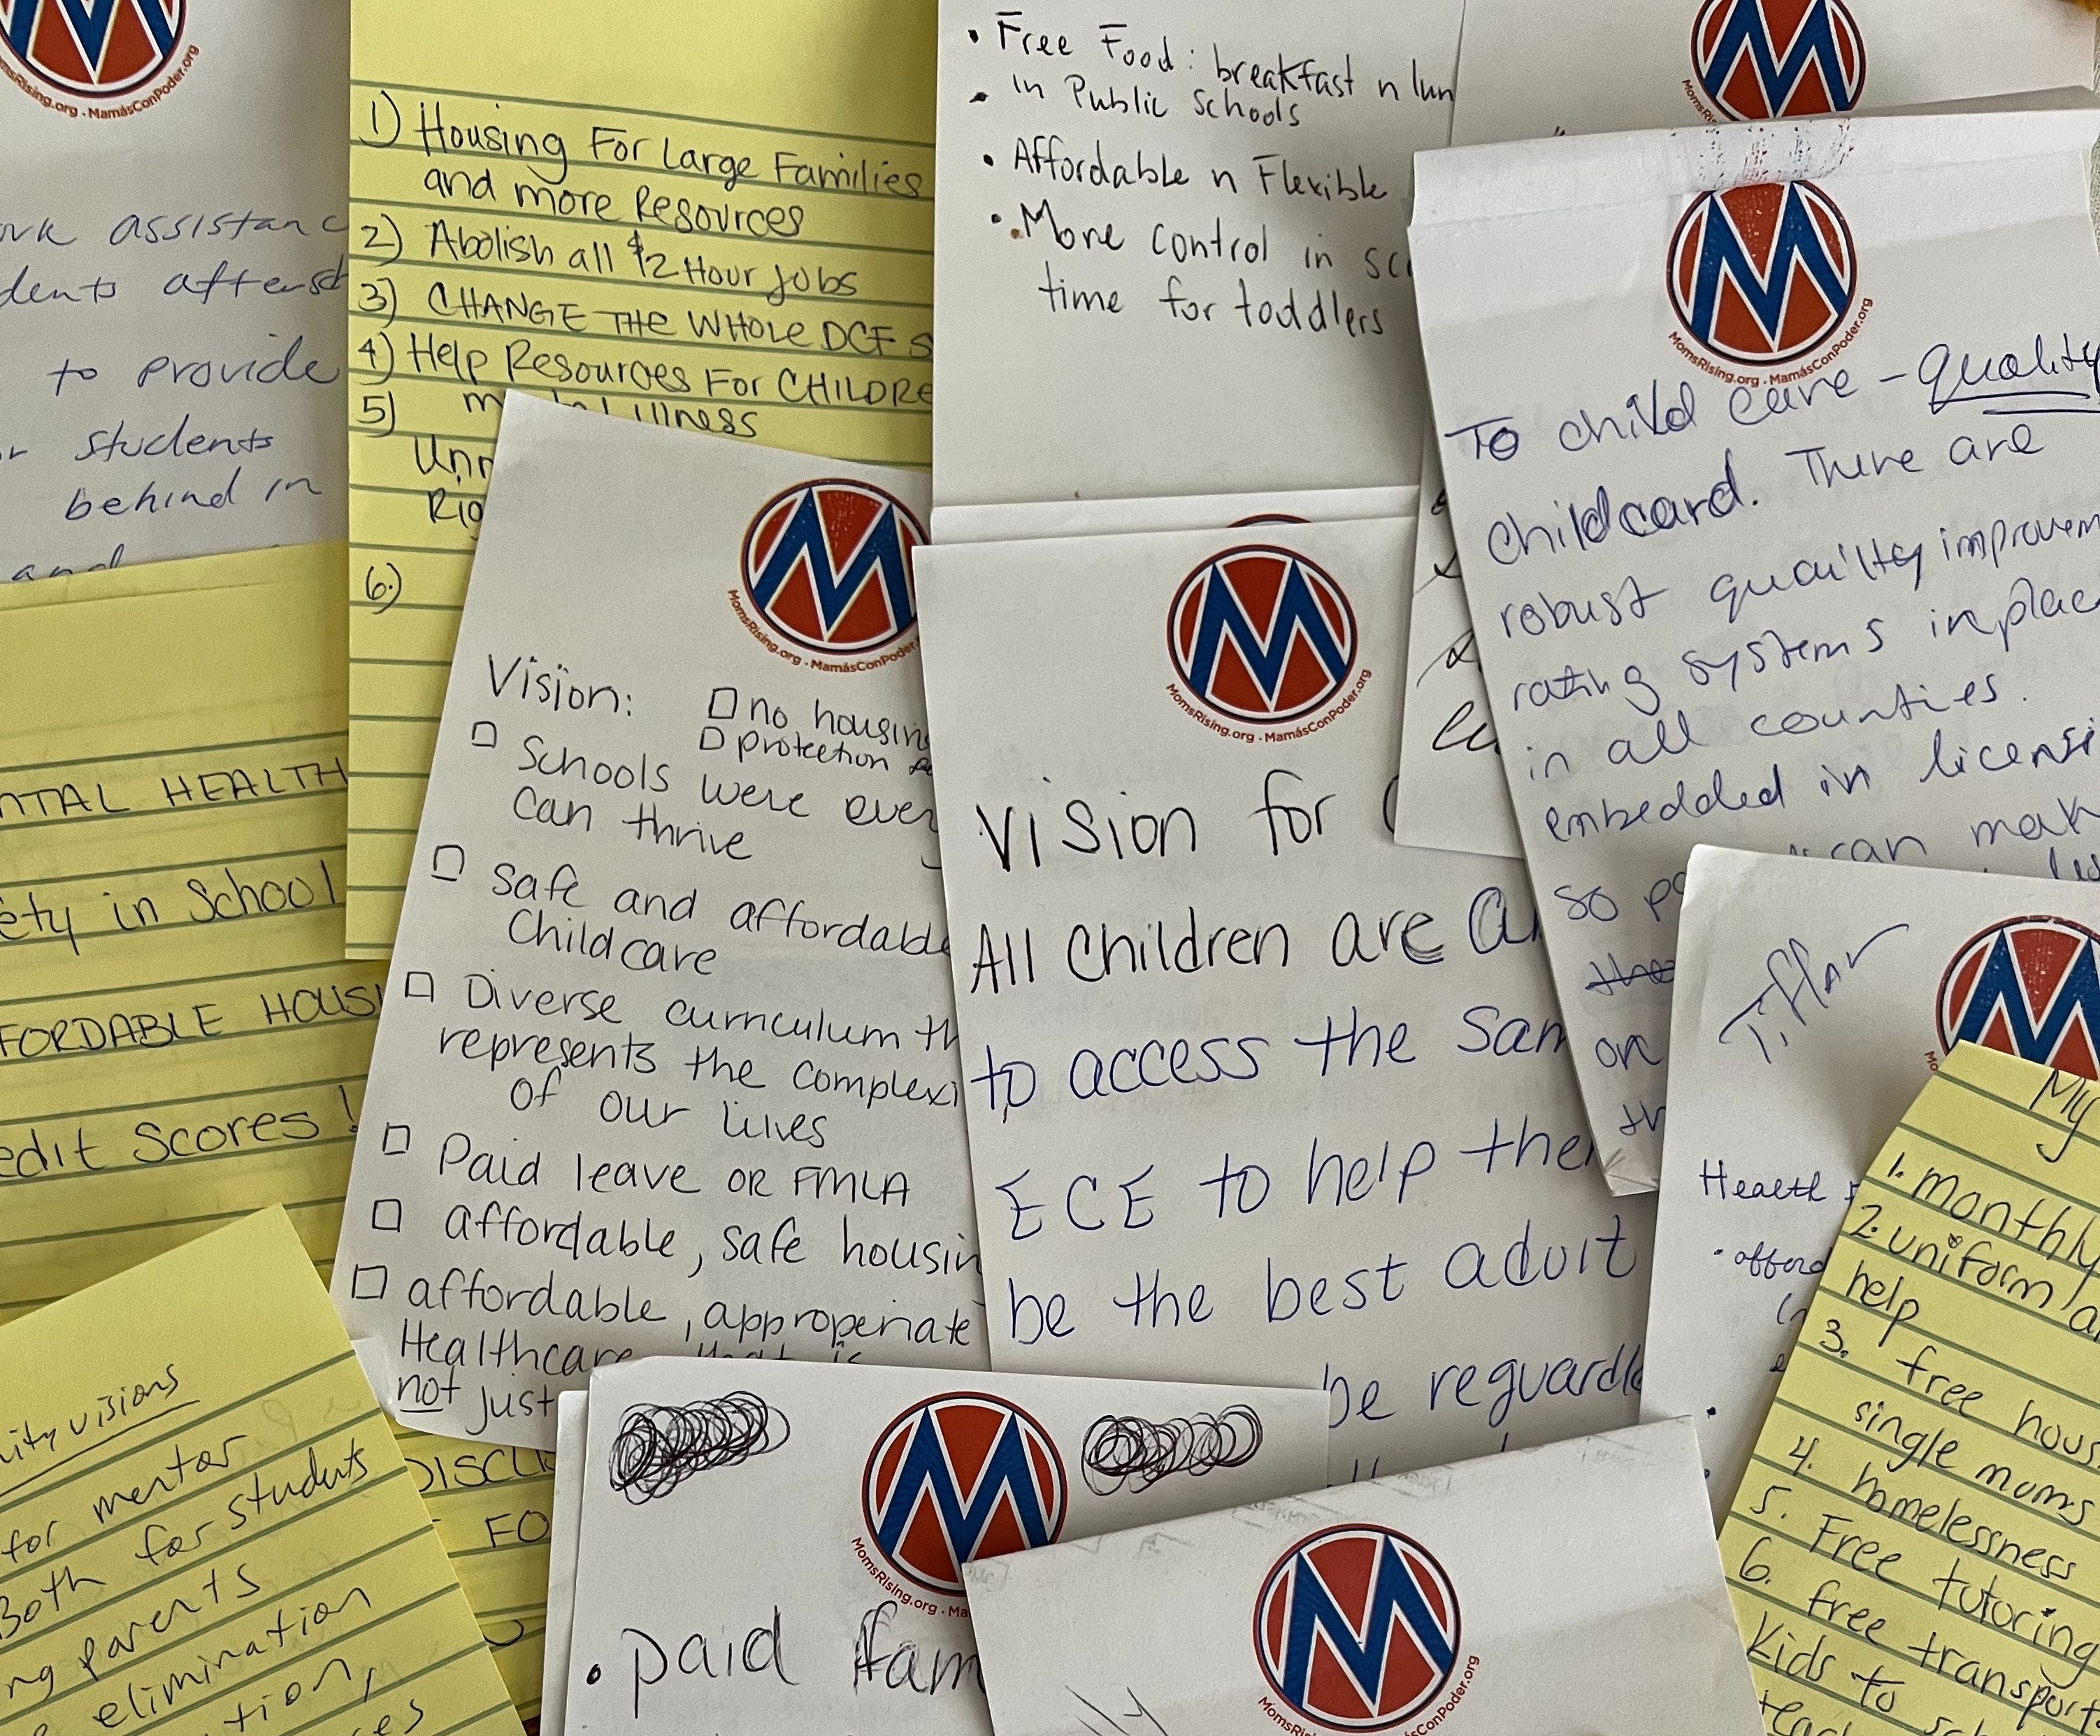 MomsRising.org · MamásConPoder.org
assistanc
dents aftersch
to provide
students
behind in
and
1) Housing For Large Families
and more Resources
2) Abolish all $2 Hour Jobs
3) CHANGE THE WHOLE DCF S
4) Help Resources For CHILDRE
5) illness
6.)
• Free Food: breakfast n lun
• in Public Schools
• Affordable n Flexible
• More control in sc
time for toddlers
MomsRising.org · MamásConPoder.org
To child care - quality
childcard. There are
robust quailty improvem
rating systems in place
in all counties.
embedded in licensi
can mak
so
the
on
NTAL HEALTH
ety in School
FORDABLE HOUSI
edit Scores!
MomsRising.org · MamásConPoder.
Vision: □ no housing
□ protection
□ Schools were ever
can thrive
□ Safe and affordable
Childcare
□ Diverse curriculum th
represents the complexi
of our lives
□ Paid leave OR FMLA
□ affordable, safe housin
□ affordable, approperiate
Healthcare that is
not just
MomsRising.org · MamásConPoder.org
Vision for
All Children are
to access the Sam
ECE to help the
be the best adult
be reguardle
Health
• afford
My
1. monthly
2. uniform a
help
3. free hous
single moms
4. homelessness
5. Free tutoring
6. free transport
Kids to
ity visions
for mentor
Both for students
ng parents
elimination
tion,
DISCL
FO
MomsRising.org · Ma
• paid fam
MomsRisi
MamásConPoder.org